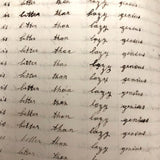 is better than lazy genius
is better than lazy genius
is better than lazy genius
is better than lazy genius
is better than lazy genius
is better than lazy genius
is better than lazy genius
is better than lazy genius
better than lazy genius
better than lazy genius
better than lazy genius
than lazy genius